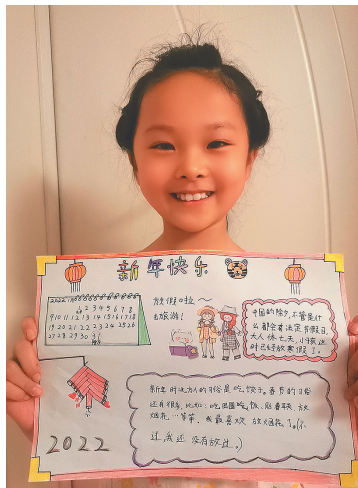 新年快乐
2022.1
1 2 3 4 5 6 7 8
9 10 11 12 13 14 15 16 17 18
19 20 21 22 23 24 25 26
27 28 29 30 31
放假啦~
去旅游!
中国的除夕,不管是什
么都会者法定节假日,
大人休七天,小孩这
时已经放寒假了。
新年时北方人的习俗是吃饺子。春节的习俗
还有很多,比如:吃团圆饭、贴春联、放
烟花……等等,我最喜欢放烟花了。(不
过,我还没有放过。)
2022